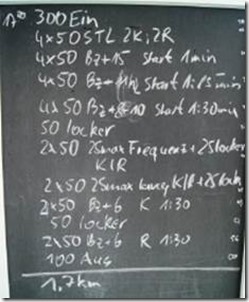 300 Ein
4x50 STL 2K; 2R
4x50 Bz+15 Start 1min
4x50 Bz+ Start 1:15min
4x50 Bz+ 10 Start 1:30min
50 locker
2x50 25max Frequenz+25locker
K/R
2x50 25max lang K/R+25lock
2x50 Bz+6 K 1:30
50 locker
2x50 Bz+6 R 1:30
100 Aus
1,7km